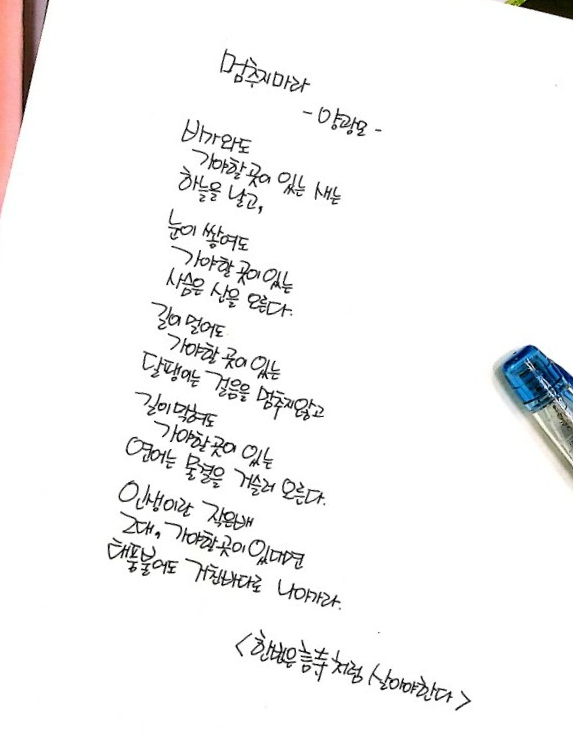 멈추지마라
- 양광모 -
비가와도
가야할 곳이 있는 새는
하늘을 날고,
눈이 쌓여도
가야할 곳이 있는
사슴은 산을 오른다.
길이 멀어도
가야할 곳이 있는
달팽이는 걸음을 멈추지않고
길이 막혀도
가야할 곳이 있는
연어는 물결을 거슬러 오른다.
인생이란 작은배
그대, 가야할 곳이 있다면
태풍불어도 거친바다로 나아가라.
<한번은 詩처럼 살아야한다>